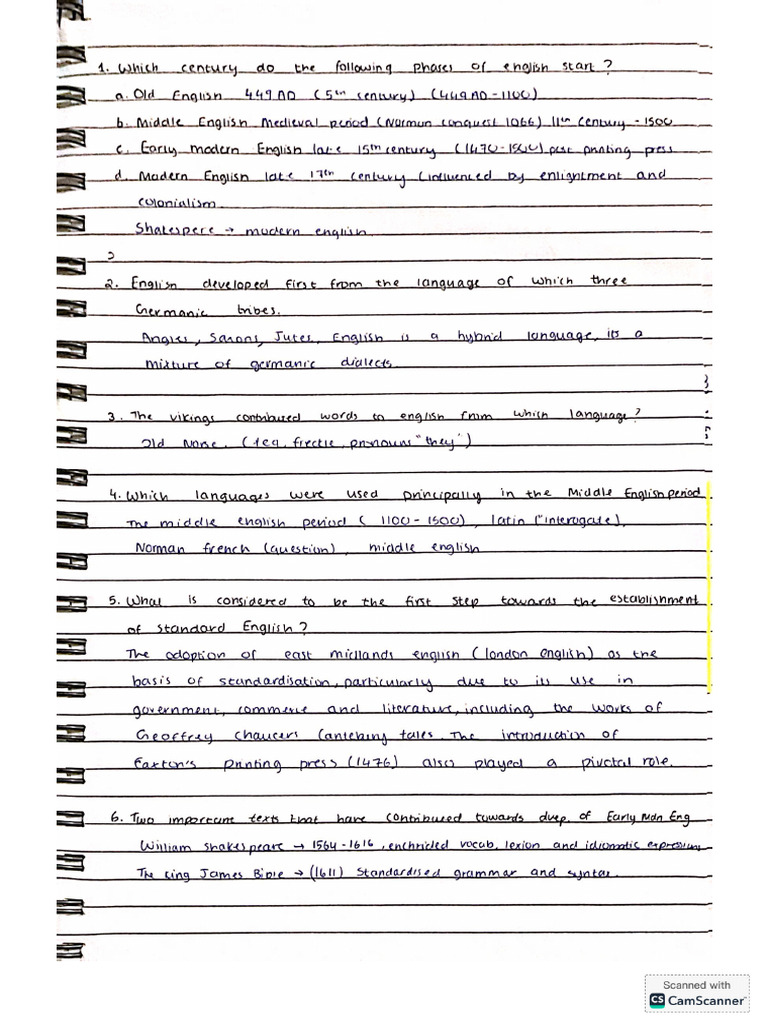 1. Which century do the following phases of english start?
a. Old English 449 AD (5th century) (449 AD - 1100)
b. Middle English Medieval period (Norman conquest 1066) 11th century - 1500
c. Early modern English late 15th century (1470 - 1500) post printing press
d. Modern English late 17th century (influenced by enlightment and
colonialism.
Shakespere → modern english
2. English developed first from the language of which three
Germanic tribes.
Angles, Saxons, Jutes, English is a hybrid language, its a
mixture of germanic dialects.
3. The vikings contributed words to english from which language?
Old Norse. ( pronouns "they")
4. Which languages were used principally in the Middle English period
The middle english period (1100 - 1500), latin ("interogate),
Norman french (question), middle english
5. What is considered to be the first step towards the establishment
of standard English?
The adoption of east midlands english (london english) as the
basis of standardisation, particularly due to its use in
government, commerce and literature, including the works of
Geoffrey chaucers Canterbury tales. The introduction of
Caxton's printing press (1476) also played a pivotal role.
6. Two important texts that have contributed towards dvep. of Early Mdn Eng
William shakespeare → 1564 - 1616, enchrided vocab, lexion and idiomatic expressions
The king James Bible → (1611) Standardised grammar and syntax.
Scanned with
CS CamScanner